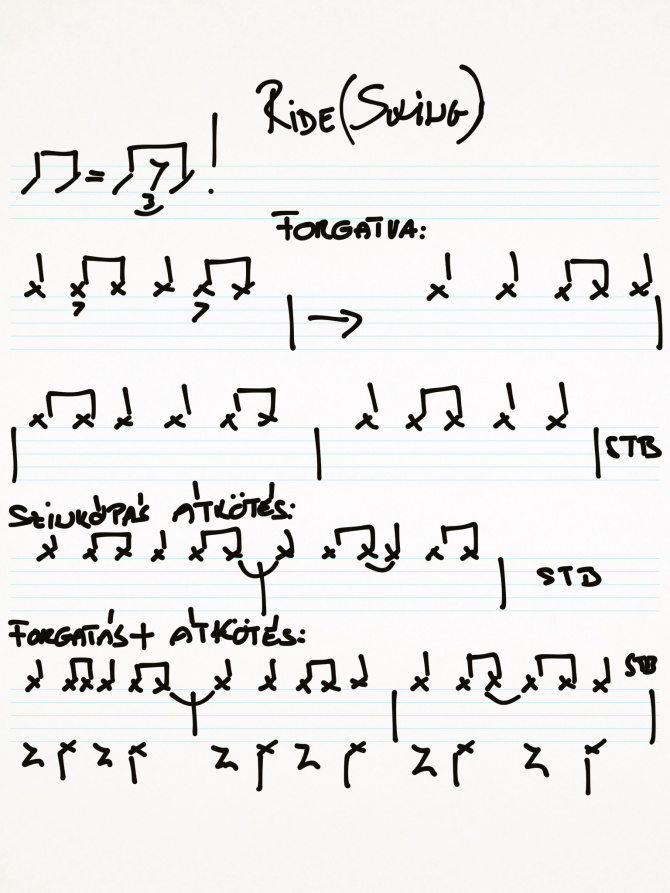 RIDE (SWING)
3
FORGATVA:
STB
SZINKÓPÁS ÁTKÖTÉS:
STB
FORGATÁS + ÁTKÖTÉS:
STB